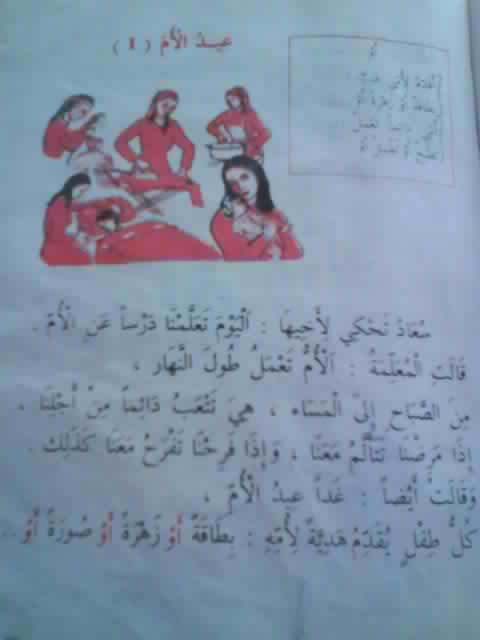 عِيدُ الْأُمِّ ( 1 )
أَوْ
سُعَادُ تَحْكِي لِأَخِيهَا : اَلْيَوْمَ تَعَلَّمْنَا دَرْساً عَنِ الْأُمِّ .
قَالَتِ الْمُعَلِّمَةُ : اَلْأُمُّ تَعْمَلُ طُولَ النَّهَارِ ،
مِنَ الصَّبَاحِ إِلَى الْمَسَاءِ ، هِيَ تَتْعَبُ دَائِماً مِنْ أَجْلِنَا ،
إِذَا مَرِضْنَا تَتَأَلَّمُ مَعَنَا ، وَإِذَا فَرِحْنَا تَفْرَحُ مَعَنَا كَذَلِكَ .
وَقَالَتْ أَيْضاً : غَداً عِيدُ الْأُمِّ ،
كُلُّ طِفْلٍ يُقَدِّمُ هَدِيَّةً لِأُمِّهِ : بِطَاقَةً أَوْ زَهْرَةً أَوْ صُورَةً أَوْ ...